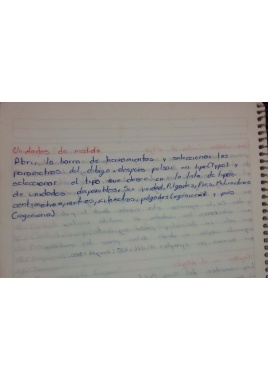 Unidades de medida
Abrir la barra de herramientas y seleccionar los
parametros del dibujo, despues pulsar en type(Tipo) y
seleccionar el tipo que desee en la lista de tipos
de unidades disponibles, pulgadas, Pies, Milimetros
centimetros, metros, kilometros, pulgadas (ingenieria) y pies
(ingenieria)